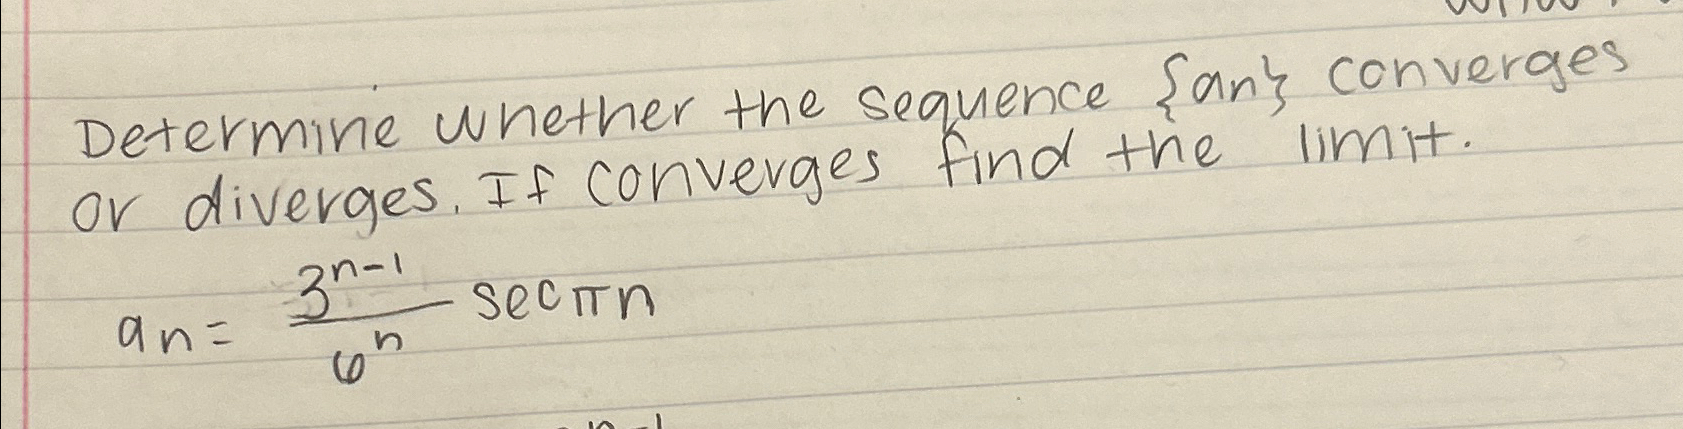 Determine whether the sequence {an} converges
or diverges. If converges find the limit.
an = 3^{n-1}/6^n sec πn
n-1